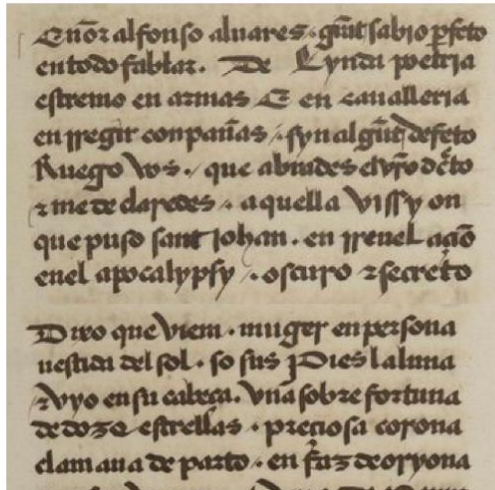 Señor alfonso aluares. gũt sabio perfeto
en todo fablar. De Lynda poetria
estremo en armas E en caualleria
en rregir conpañas / syn algũt defeto
Ruego vos / que abiades el vr̃o dec̃to
e me declaredes / aquella vissyon
que puso sant Johan. en rreuelaçiõ
enel apocalypsy / oscuro e secreto
Dixo que viera. muger en persona
uestida del sol. so sus pies la luna
e vyo en su cabeça. vna sobre fortuna
de doze estrellas. preciosa corona
clamaua de parto. en faz de oryona